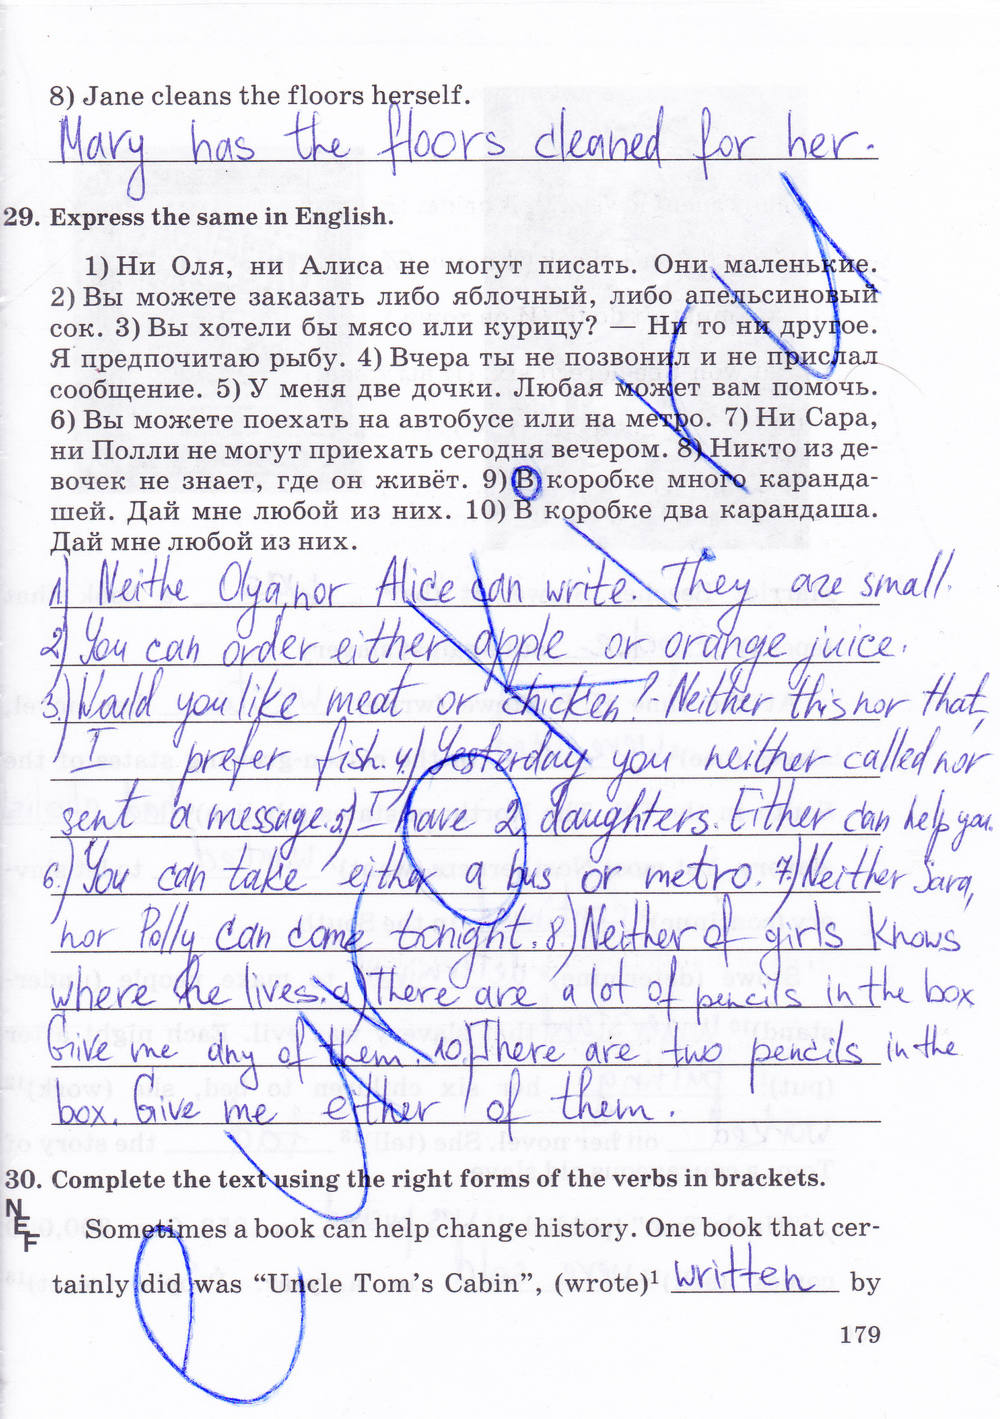 8) Jane cleans the floors herself.
Mary has the floors cleaned for her.
29. Express the same in English.
1) Ни Оля, ни Алиса не могут писать. Они маленькие.
2) Вы можете заказать либо яблочный, либо апельсиновый
сок. 3) Вы хотели бы мясо или курицу? — Ни то ни другое.
Я предпочитаю рыбу. 4) Вчера ты не позвонил и не прислал
сообщение. 5) У меня две дочки. Любая может вам помочь.
6) Вы можете поехать на автобусе или на метро. 7) Ни Сара,
ни Полли не могут приехать сегодня вечером. 8) Никто из де-
вочек не знает, где он живёт. 9) В коробке много каранда-
шей. Дай мне любой из них. 10) В коробке два карандаша.
Дай мне любой из них.
1) Neithe Olga, nor Alice can write. They are small.
2) You can order either apple or orange juice.
3.) Would you like meat or chicken? Neither this nor that,
I prefer fish. 4) Yesterday you neither called nor
sent a message. 5) I have 2 daughters. Either can help you.
6.) You can take either a bus or metro. 7) Neither Sara,
nor Polly can come tonight. 8.) Neither of girls knows
where he lives. 9) There are a lot of pencils in the box
Give me any of them. 10.) There are two pencils in the
box. Give me either of them.
30. Complete the text using the right forms of the verbs in brackets.
NEF
Sometimes a book can help change history. One book that cer-
tainly did was “Uncle Tom’s Cabin”, (wrote)1 written by
179